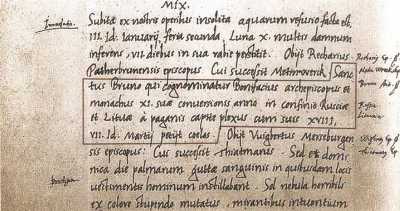 MIX.
Inundatio.
insolita aquarum refusio facta est
III. Id. Ianuarij, feria secunda, Luna X. multis damnum
inferens, VII. diebus in sua rabie perstitit. Obijt Recharius
Patherbrunensis episcopus Cui successit Sanc
tus Bruno qui cognominatur Bonifacius archepiscopus et
monachus XI. suae conuersionis anno in confinio Rusciae
et Lituae à paganis capite plexus cum suis XVIII,
VII. Id. Martij petijt coelos. Obijt Merseburgen
sis episcopus: Cui successit Thiatmarus. Sed et domi
nica die palmarum guttae sanguinis in quibusdam locis
uestimentis hominum instillabant. Sed nebula horribilis
ex colore stupendo mutatus, mirantibus intuentium